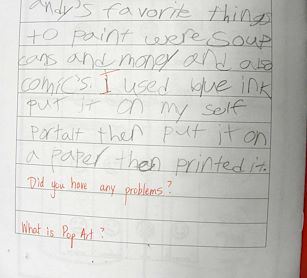 andy's favorite things
to paint were soup
cans and money and also
comics. I used blue ink
put it on my self
portait then put it on
a paper then printed it.
Did you have any problems?
What is Pop Art?